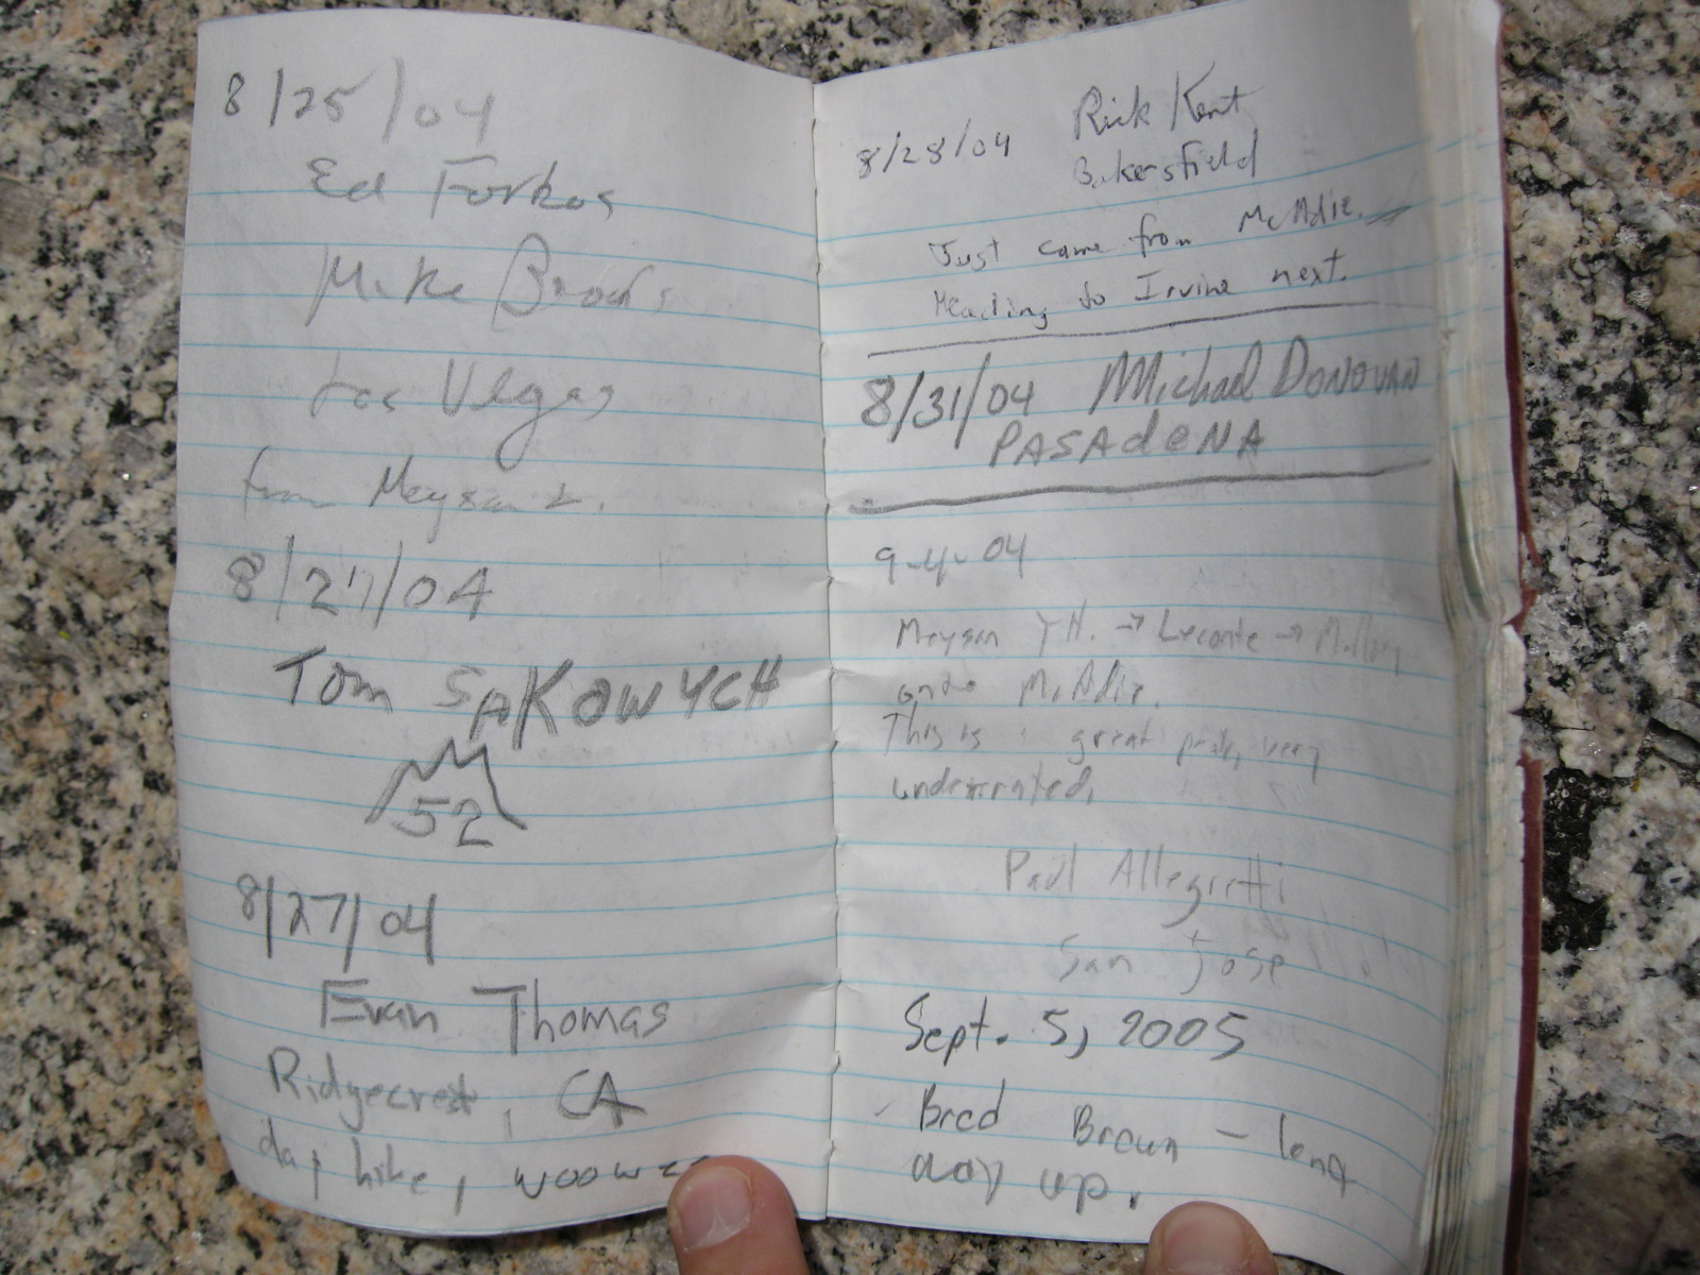 8/25/04
Ed Forkos
Mike
Las Vegas
from Meysan L.
8/27/04
Tom SAKOWYCH
52
8/27/04
Evan Thomas
Ridgecrest, CA
day hike,
8/28/04 Rick Kent
Bakersfield
Just came from McAdie.
Heading to Irvine next.
8/31/04 Michael DONOVAN
PASAdeNA
9-4-04
Meysan T.H. → Leconte → Mallory
onto McAdie.
This is great peak, very
underrated.
Paul Allegretti
San Jose
Sept. 5, 2005
- Brad Brown - long
day up.